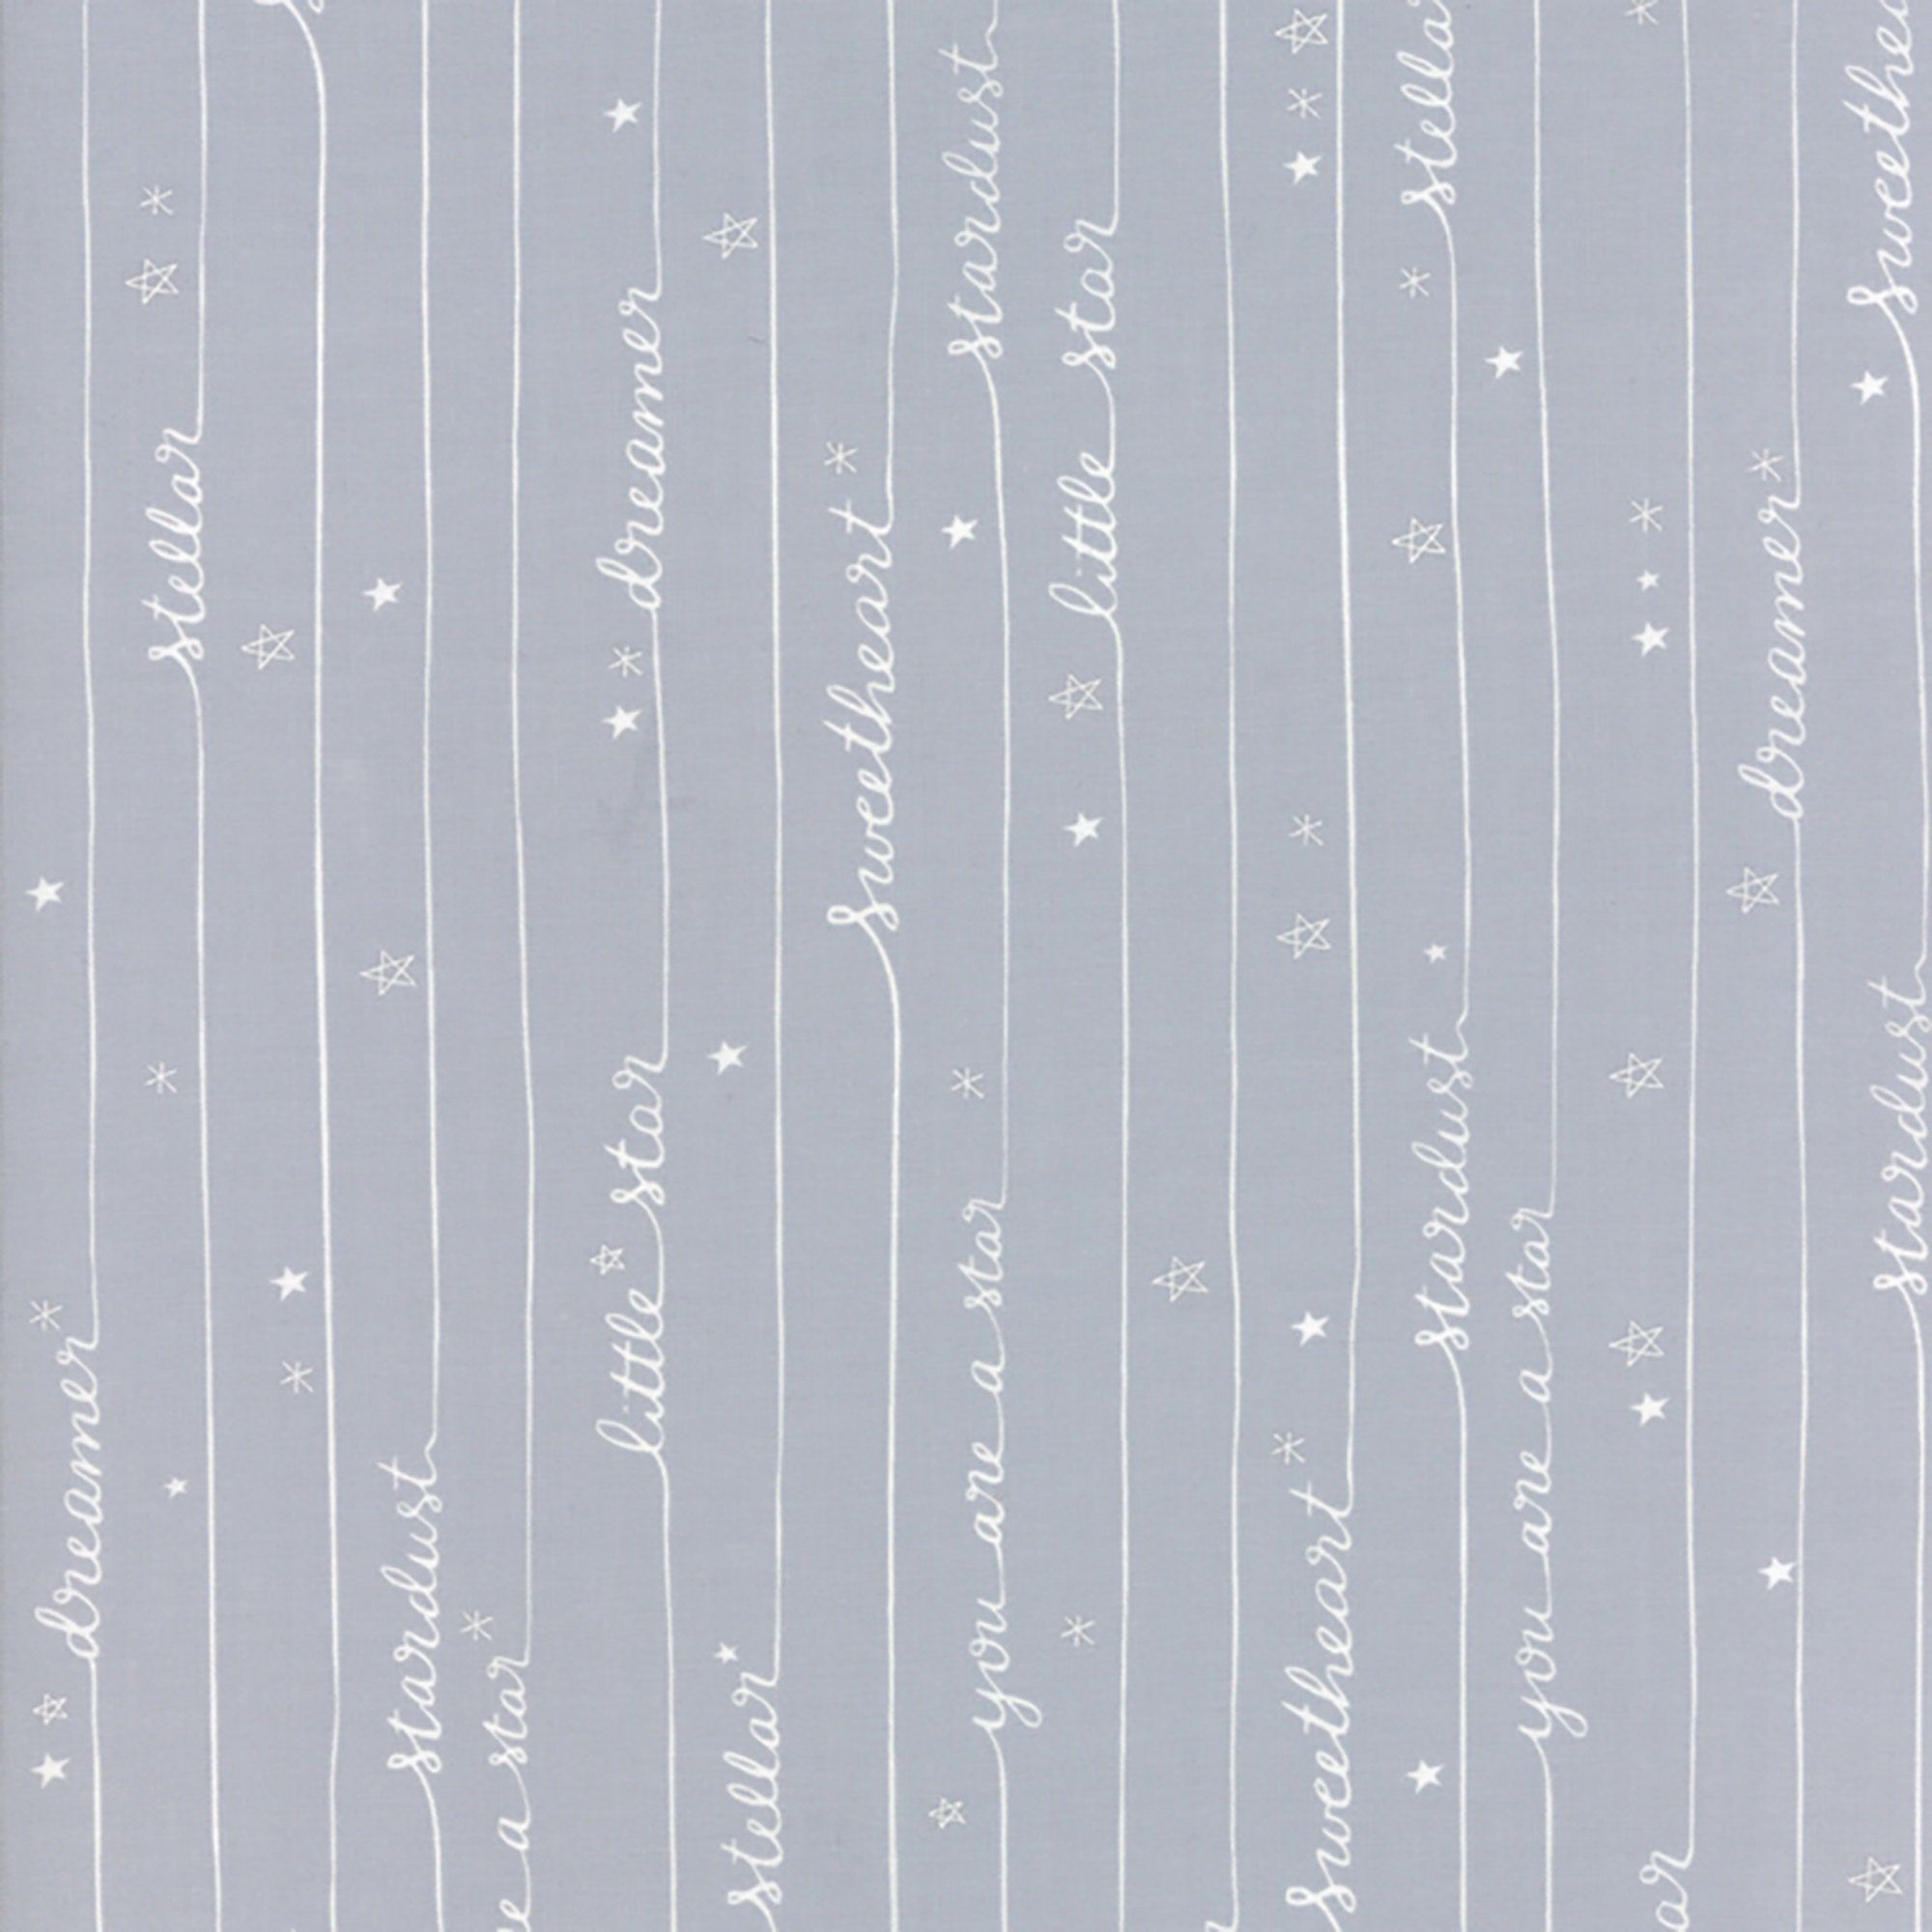 dreamer
stellar
stardust
e a star
little star dreamer
stellar
sweetheart
you are a star stardust
little star
sweetheart
stardust stellar
you are a star
ar
dreamer
stardust sweethea